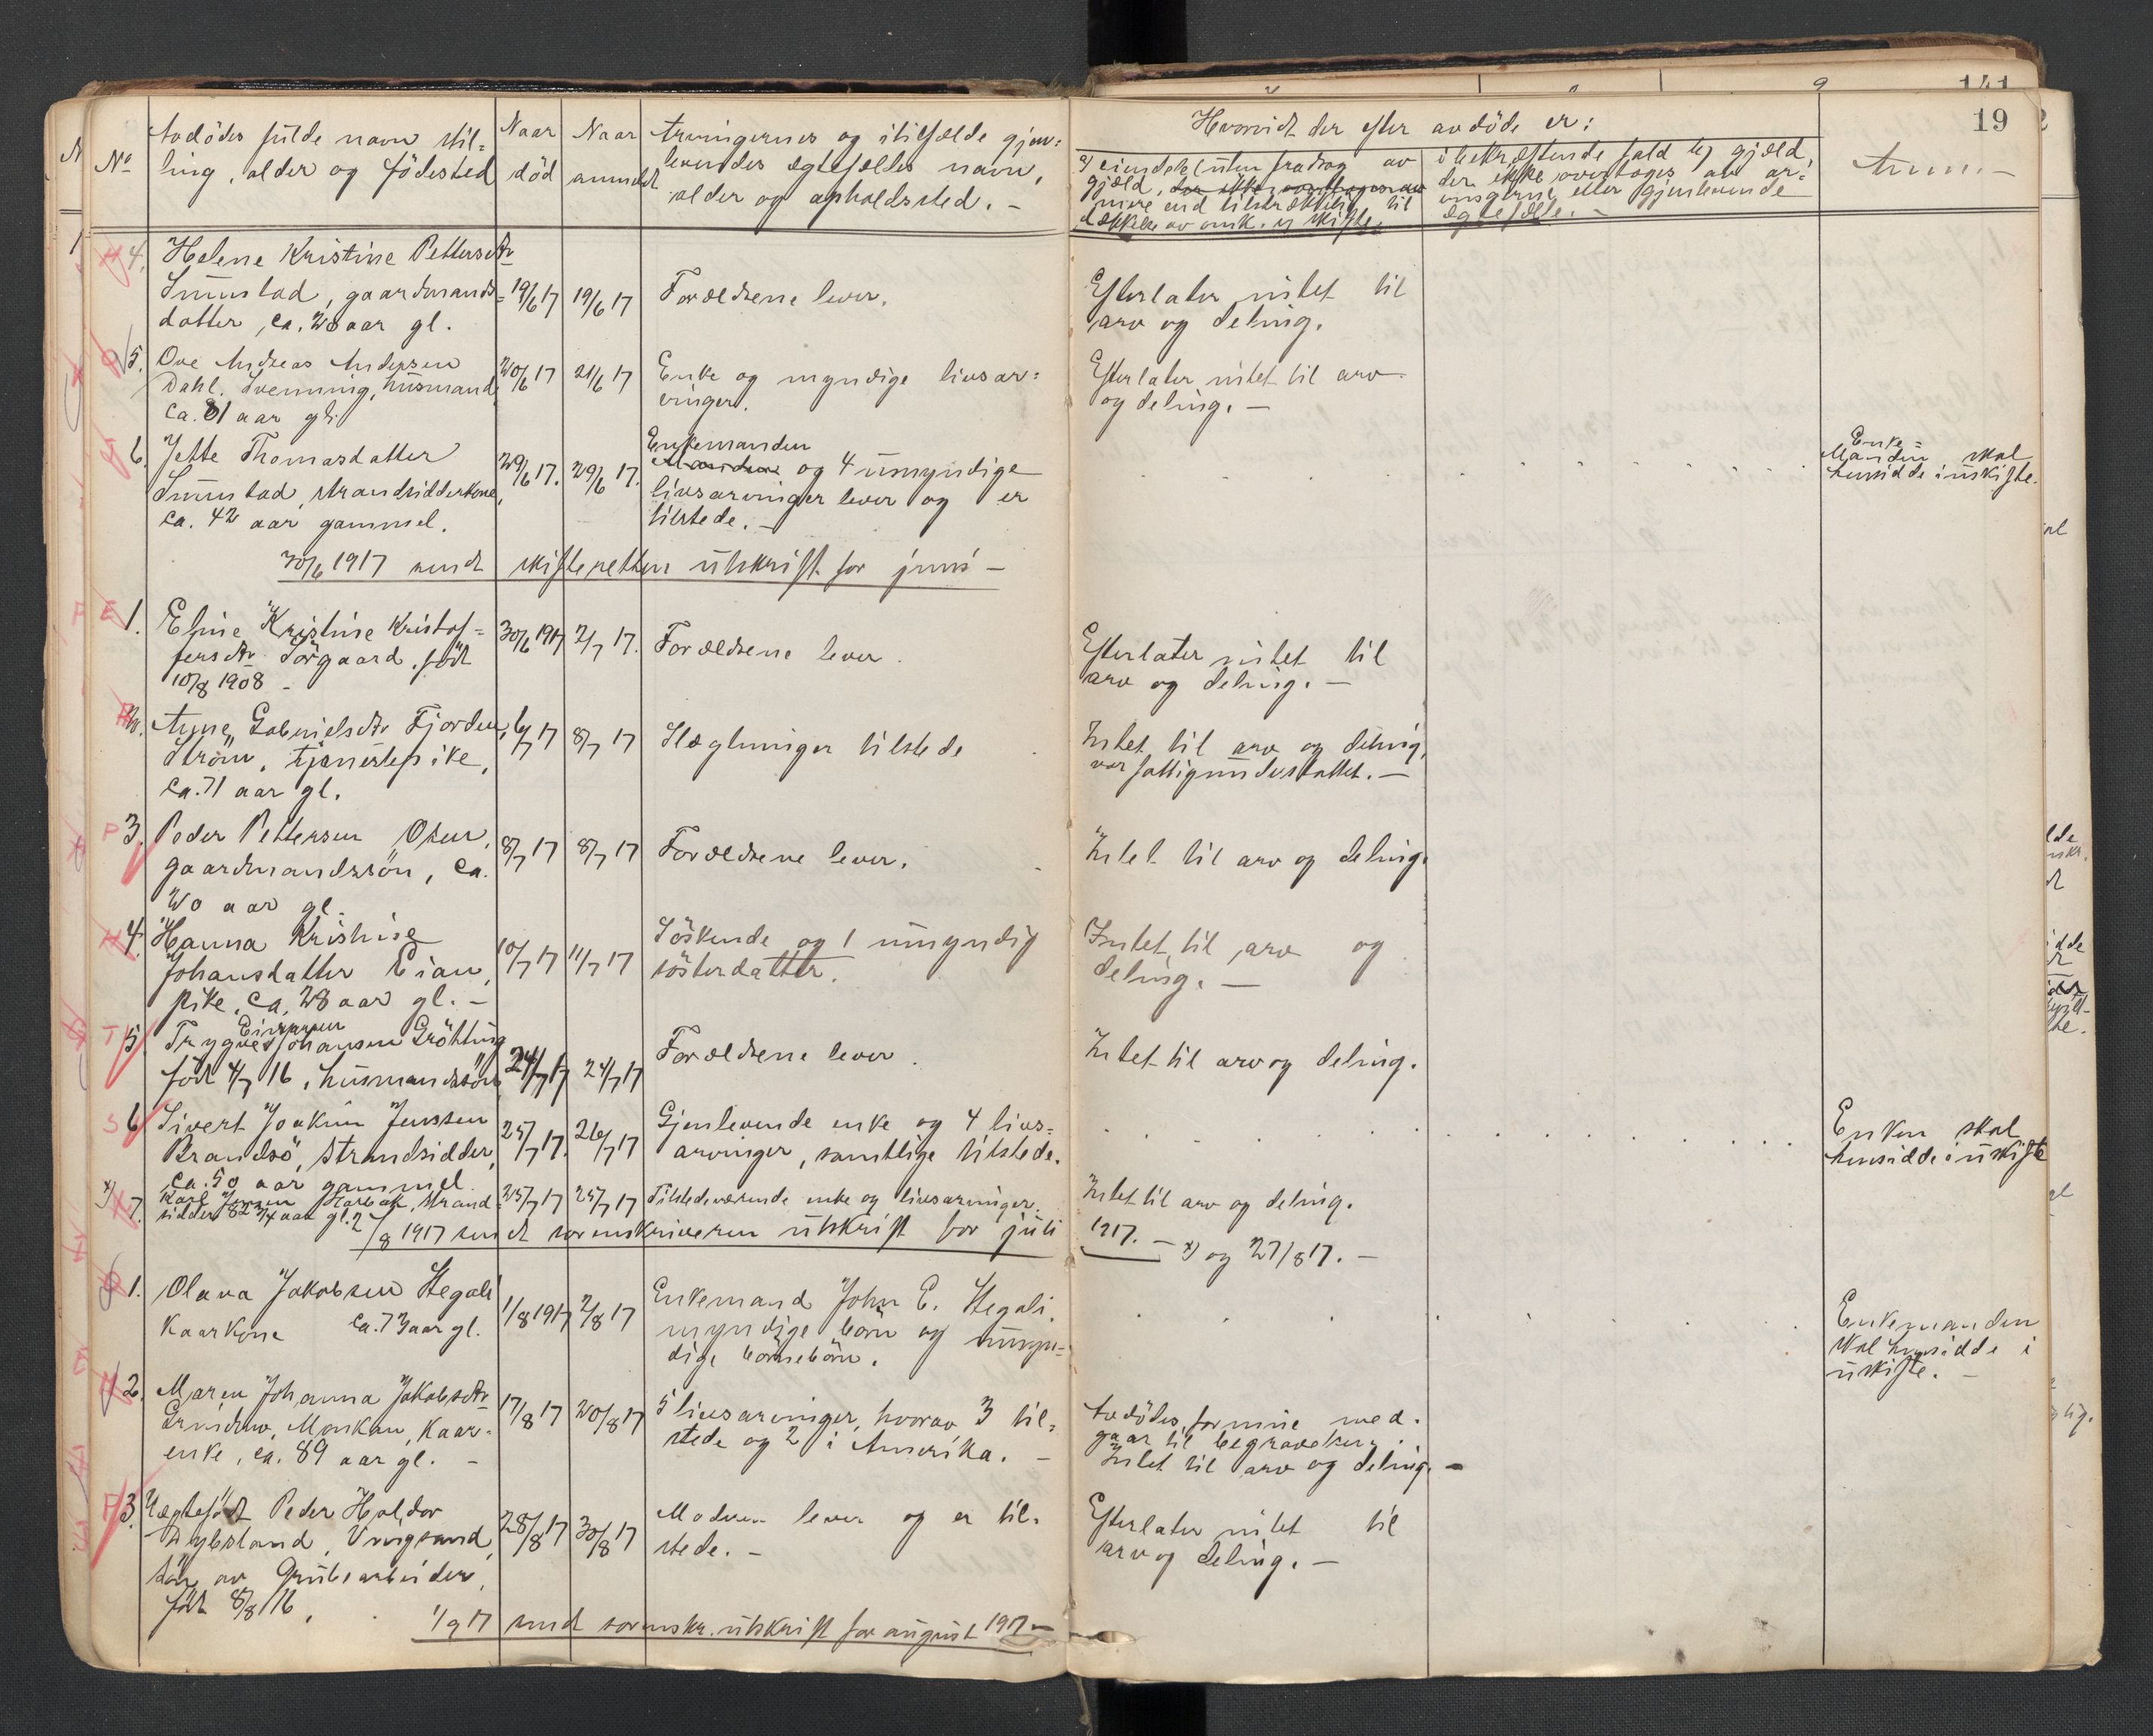 19
No
Avdödes fulde navn stil=
ling, alder og födested
Naar
död
Naar
anmeldt
Arvingernes og i tilfælde gjen=
levendes ægtefælles navn,
alder og opholdssted. -
Hvorvidt der efter avdöde er:
a) eiendele (uten fradrag av
gjæld,
mere end tilstrækkelig til
dækkelse av omk. v. skifte,
i bekræftende fald b) gjæld,
der ikke overtages av ar=
vingerne eller gjenlevende
ægtefælle. -
Anm. -
H 4. Helene Kristine Pettersdtr
Sminstad, gaardmands=
datter, ca. 20 aar gl.
19/6 17 19/6 17 Forældrene lever.
Efterlater intet til
arv og deling.
O 5. Ove Andreas Andersen
Dahl, Svenning, husmand,
ca. 81 aar gl.
20/6 17 21/6 17 Enke og myndige livsar=
vinger.
Efterlater intet til arv
og deling. -
6. Jette Thomasdatter
Sminstad, strandsidderkone,
ca. 42 aar gammel.
29/6 17. 29/6 17.
Enkemanden
Manden og 4 umyndige
livsarvinger lever og er
tilstede. -
Enke=
Manden skal
hensidde i uskifte.
30/6 1917 sendt skifteretten utskrift for juni -
E 1. Eline Kristine Kristof=
fersdtr Sörgaard, födt
10/8 1908 -
30/6 1917 2/7 17. Forældrene lever.
Efterlater intet til
arv og deling. -
2. Anne Gabrielsdtr Fjorden,
Ström, tjenestepike,
ca. 71 aar gl.
6/7 17 8/7 17 Slægtninger tilstede
Intet til arv og deling,
var fattigunderstöttet. -
P 3. Peder Pettersen Osen,
gaardmandssön, ca.
20 aar gl.
8/7 17 8/7 17 Forældrene lever.
Intet til arv og deling.
H 4. Hanna Kristine
Johansdatter Eian,
pike, ca. 28 aar gl. -
10/7 17 11/7 17 Söskende og 1 umyndig
sösterdatter.
Intet til arv og
deling. -
T 5. Trygve Johansen Grötting
Einarsen
födt 4/7 16, husmandssön
24/7 17 24/7 17 Forældrene lever.
Intet til arv og deling.
S 6 Sivert Joakim Jenssen
Brandsö, strandsidder,
ca. 50 aar gammel
25/7 17. 26/7 17 Gjenlevende enke og 4 livs=
arvinger, samtlige tilstede.
Enken skal
hensidde i uskifte
x) 7. Karl Jensen Harbak, strand=
sidder 82 3/4 aar gl.
25/7 17 25/7 17 Tilstedeværende enke og livsarvinger.
Intet til arv og deling.
2/8 1917 sendt sorenskriveren utskrift for juli
1917. - x) og 27/8 17. -
O 1. Olava Jakobsen Stegali
Kaarkone ca. 73 aar gl.
1/8 1917 2/8 17 Enkemand John E. Stegali.
myndige börn og umyn=
dige börnebörn.
Enkemanden
skal hensidde i
uskifte. -
M 2. Maren Johanna Jakobsdtr
Monkan, Kaar=
enke, ca. 89 aar gl. -
17/8 17 20/8 17 5 livsarvinger, hvorav 3 til=
stede og 2 i Amerika. -
Avdödes formue med=
gaar til begravelsen.
Intet til arv og deling. -
P 3. Uægtefödt Peder Haldor
Dybsland, Vingsand,
sön av Grubearbeider,
födt 8/8 16.
28/8 17 30/8 17 Moderen lever og er til=
stede. -
Efterlater intet til
arv og deling. -
1/9 17 sendt sorenskr. utskrift for august 1917 -